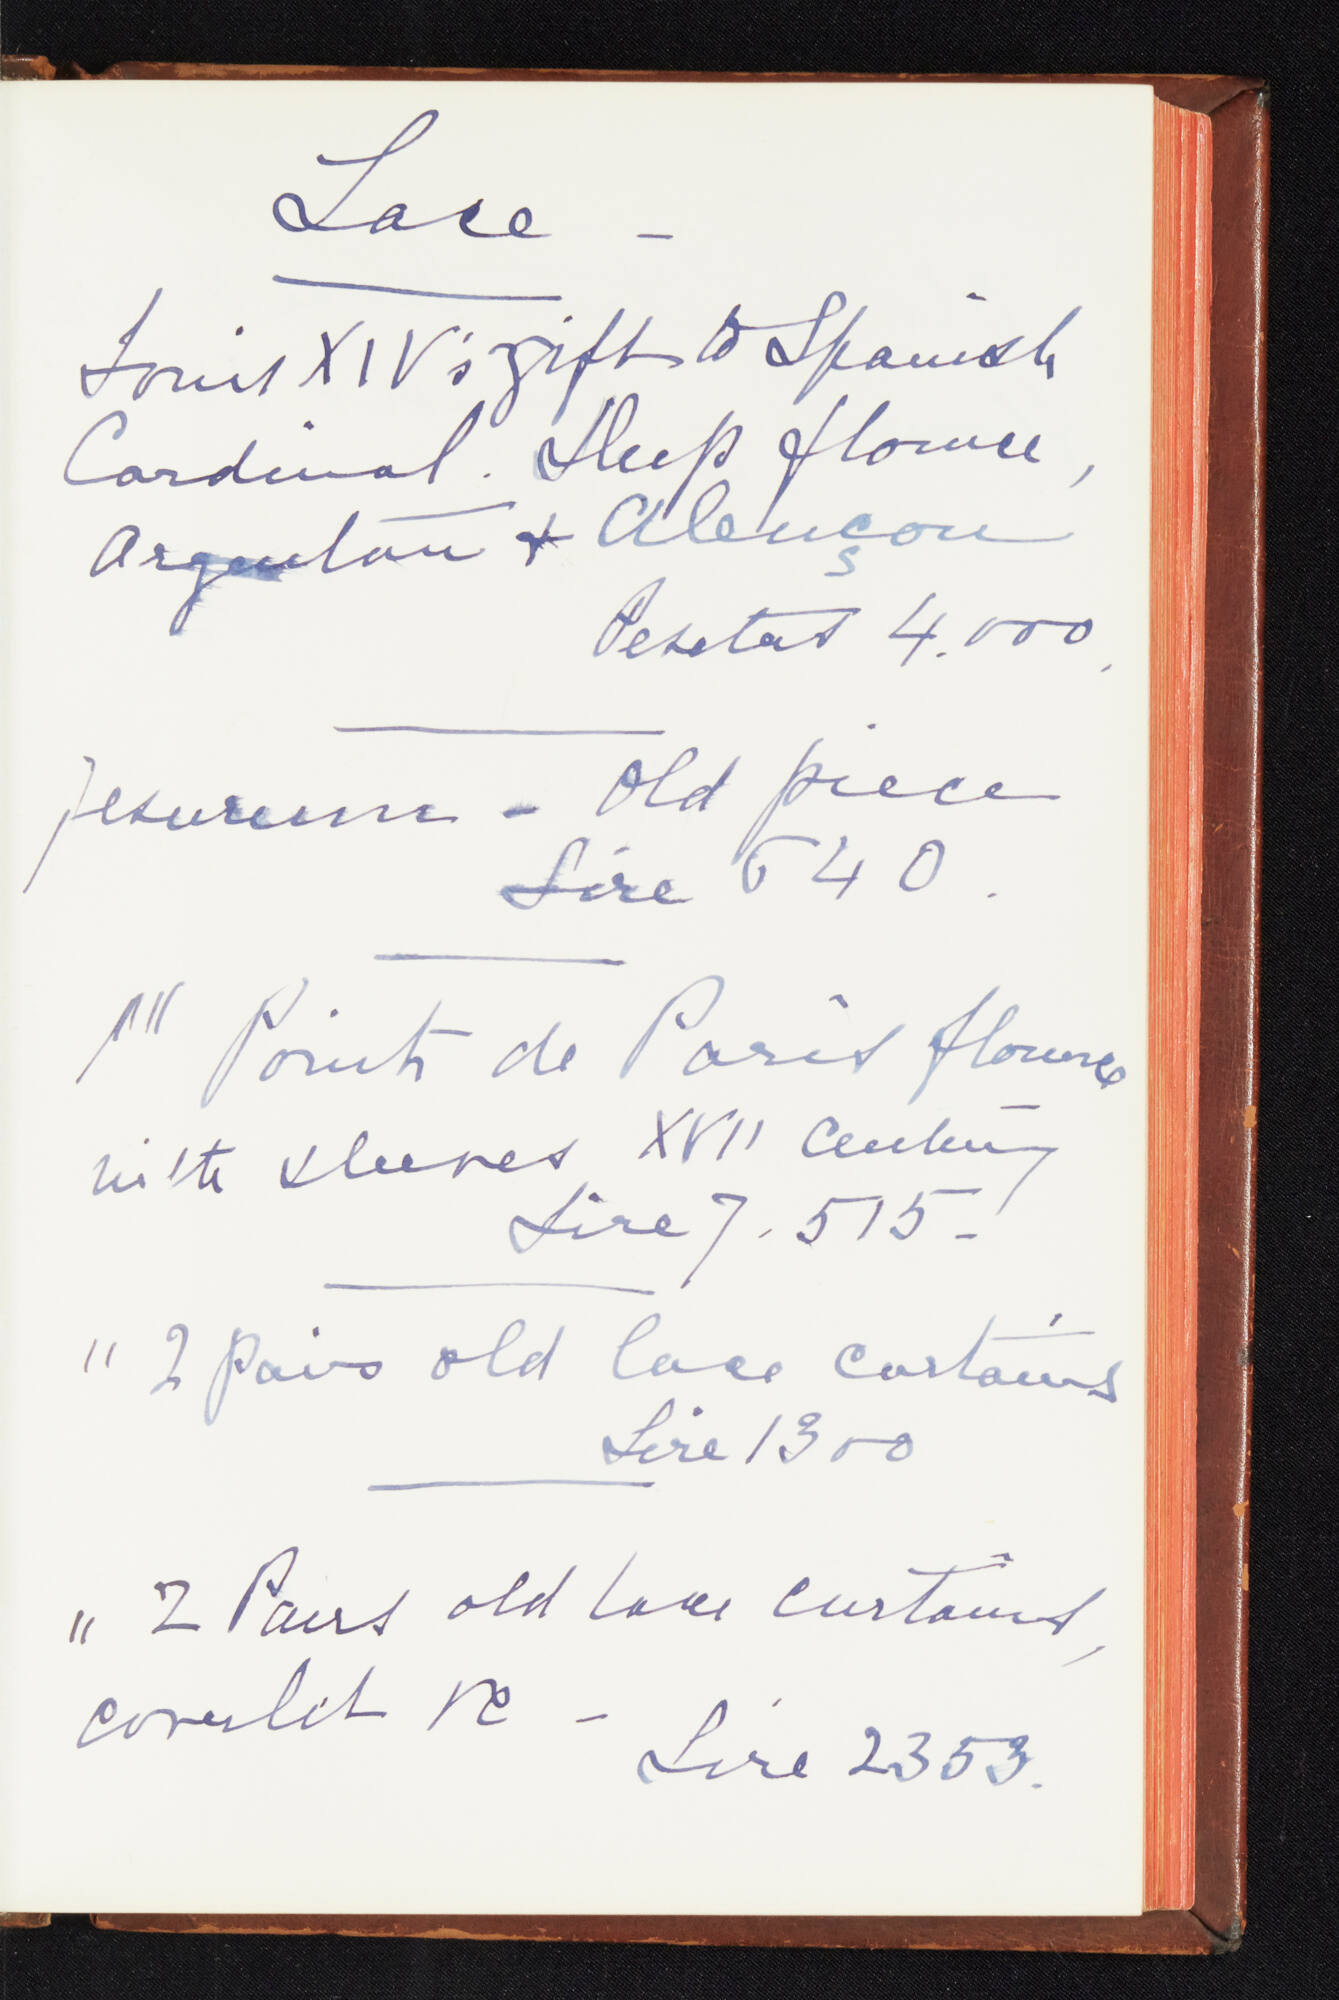 Lace -
Louis XIV's gift to Spanish
Cardinal. Deep flounce,
Argentan + Alençon
Pesetas 4.000.
Jesurum - Old piece
Lire 640.
" Point de Paris flounce
with sleeves XVII Century
Lire 7.515-
" 2 pairs old lace curtains
Lire 1300
" 2 Pairs old lace curtains,
coverlet &c -
Lire 2353.